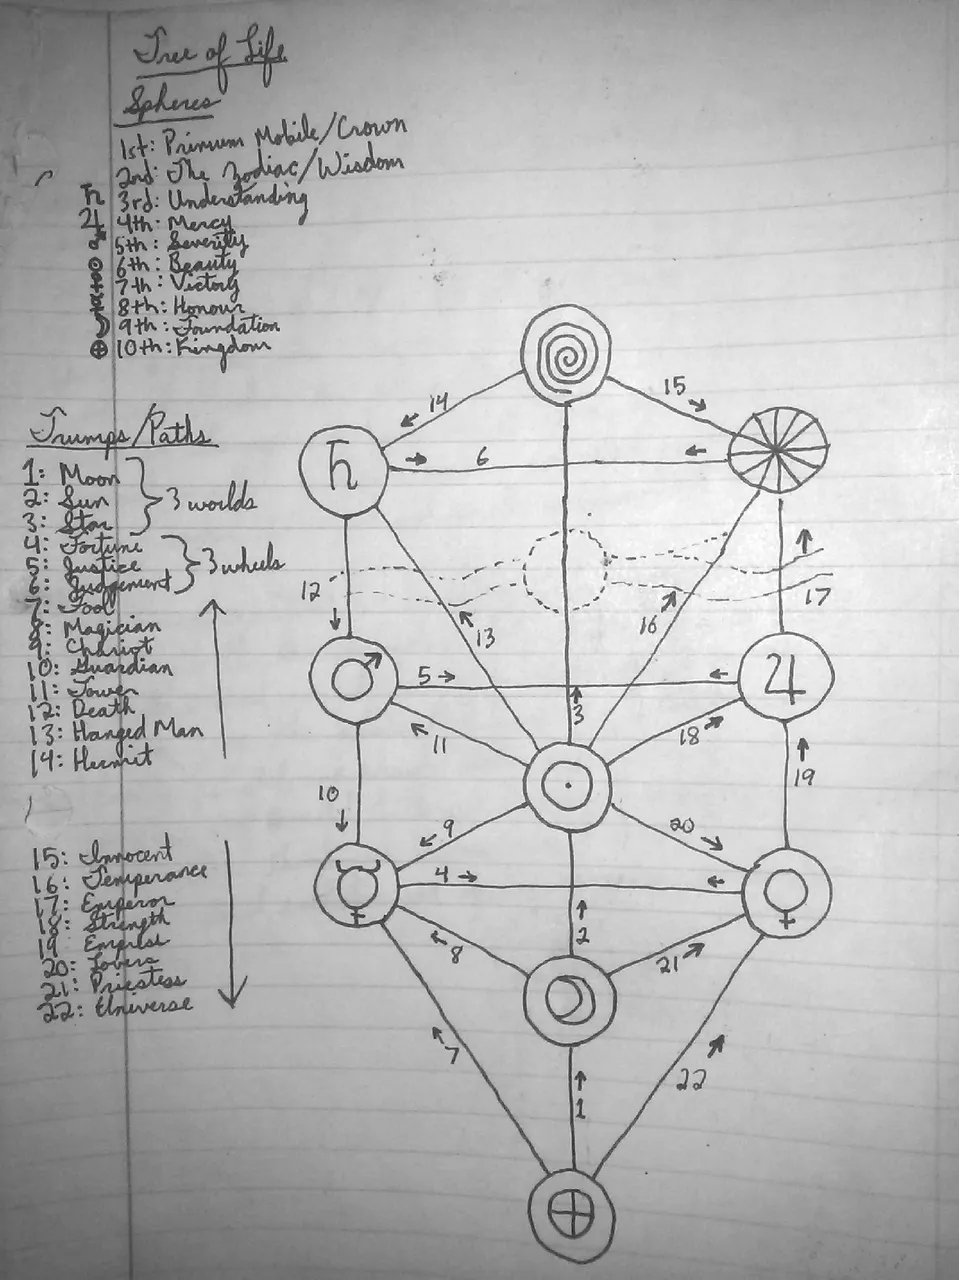 Tree of Life
Spheres
1st: Primum Mobile/Crown
2nd: The Zodiac/Wisdom
♄ 3rd: Understanding
♃ 4th: Mercy
♂ 5th: Severity
☉ 6th: Beauty
♀ 7th: Victory
☿ 8th: Honour
☽ 9th: Foundation
⊕ 10th: Kingdom
Trumps/Paths
1: Moon
2: Sun
3: Star
3 worlds
4: Fortune
5: Justice
6: Judgement
3 wheels
7: Fool
8: Magician
9: Chariot
10: Guardian
11: Tower
12: Death
13: Hanged Man
14: Hermit
15: Innocent
16: Temperance
17: Emperor
18: Strength
19 Empress
20: Lovers
21: Priestess
22: Universe
← 14
15 →
♄
→ 6 ←
12 ↓
↑ 17
13
16
♂
5 → ←
♃
↑ 3
11
18
☉
10 ↓
↑ 19
9
20
☿
4 → ←
♀
↑ 2
8
21
☽
7
22
↑ 1
⊕